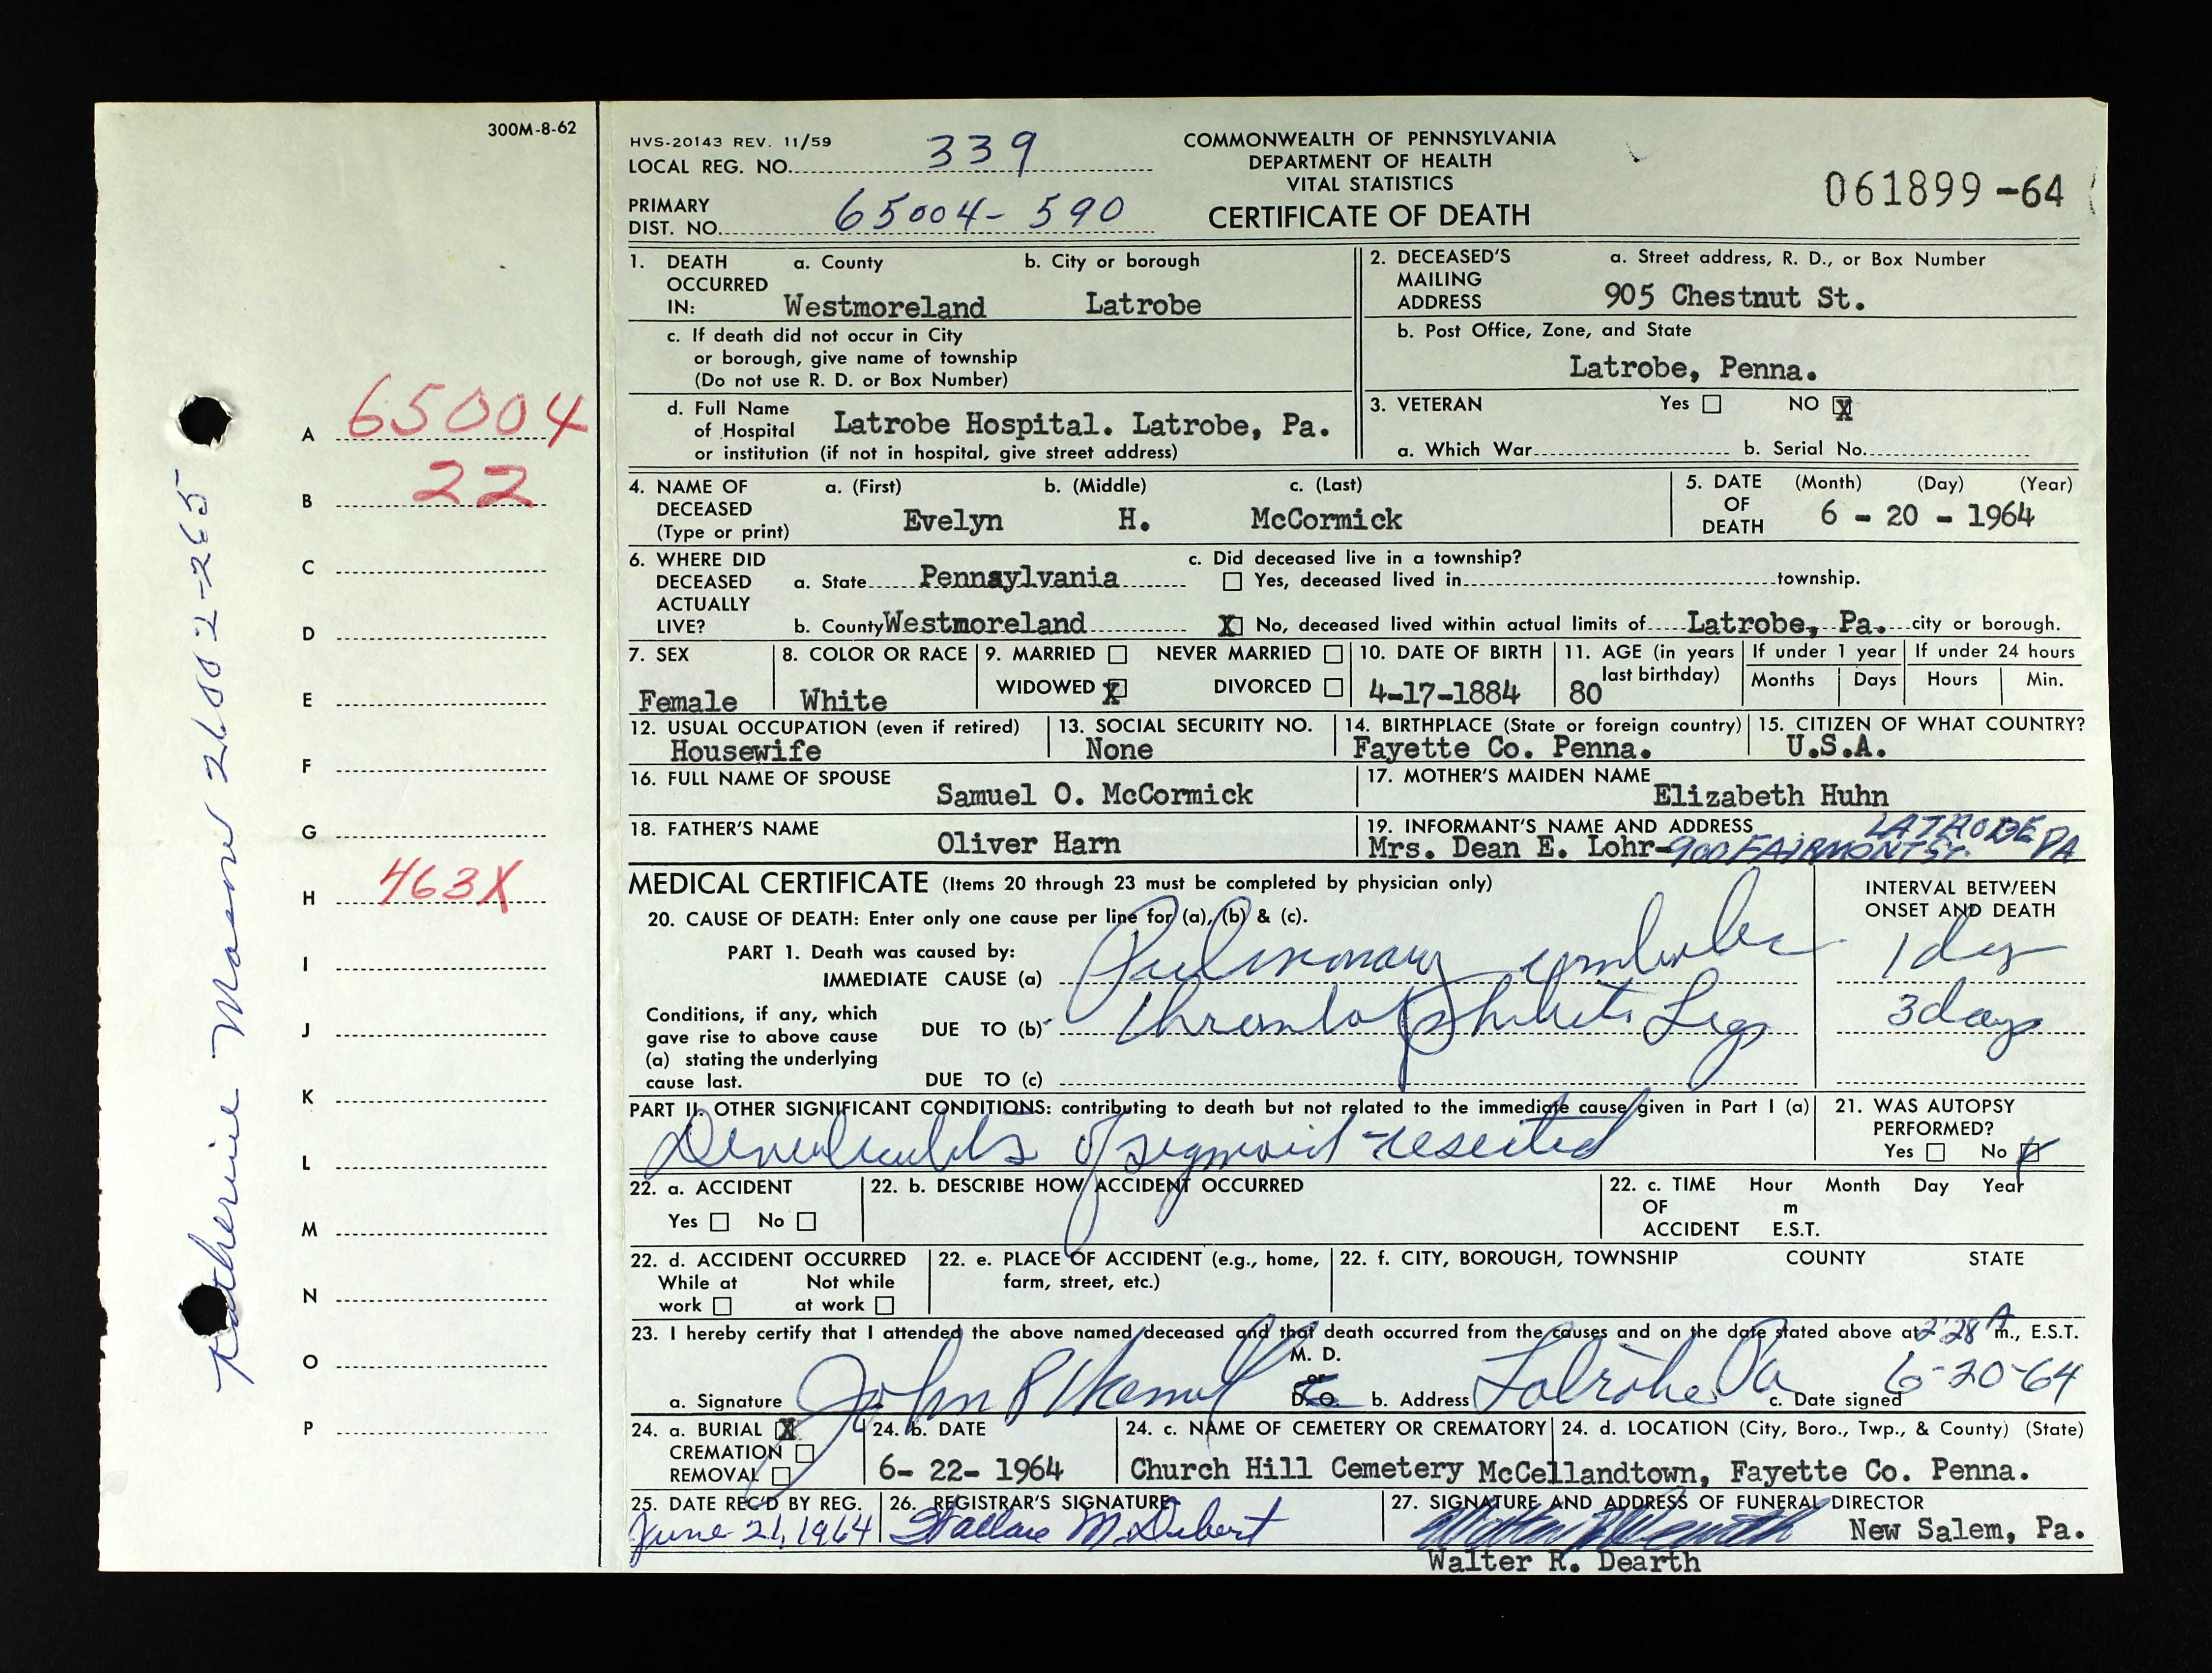 300M-8-62
HVS-20143 REV. 11/59
LOCAL REG. NO. 339
COMMONWEALTH OF PENNSYLVANIA
DEPARTMENT OF HEALTH
VITAL STATISTICS
CERTIFICATE OF DEATH
061899 -64
PRIMARY
DIST. NO. 65004- 590
1. DEATH OCCURRED IN: a. County Westmoreland b. City or borough Latrobe
2. DECEASED'S MAILING ADDRESS a. Street address, R. D., or Box Number
905 Chestnut St.
c. If death did not occur in City
or borough, give name of township
(Do not use R. D. or Box Number)
b. Post Office, Zone, and State
Latrobe, Penna.
d. Full Name of Hospital or institution (if not in hospital, give street address)
Latrobe Hospital. Latrobe, Pa.
3. VETERAN Yes NO X
a. Which War b. Serial No.
4. NAME OF DECEASED (Type or print) a. (First) b. (Middle) c. (Last)
Evelyn H. McCormick
5. DATE OF DEATH (Month) (Day) (Year)
6 - 20 - 1964
6. WHERE DID DECEASED ACTUALLY LIVE? a. State Pennsylvania
b. County Westmoreland
c. Did deceased live in a township?
Yes, deceased lived in township.
X No, deceased lived within actual limits of Latrobe, Pa. city or borough.
7. SEX Female
8. COLOR OR RACE White
9. MARRIED NEVER MARRIED
WIDOWED X DIVORCED
10. DATE OF BIRTH 4-17-1884
11. AGE (in years last birthday) 80
If under 1 year Months Days
If under 24 hours Hours Min.
12. USUAL OCCUPATION (even if retired) Housewife
13. SOCIAL SECURITY NO. None
14. BIRTHPLACE (State or foreign country) Fayette Co. Penna.
15. CITIZEN OF WHAT COUNTRY? U.S.A.
16. FULL NAME OF SPOUSE Samuel O. McCormick
17. MOTHER'S MAIDEN NAME Elizabeth Huhn
18. FATHER'S NAME Oliver Harn
19. INFORMANT'S NAME AND ADDRESS
Mrs. Dean E. Lohr-900 FAIRMONT ST. LATROBE PA
MEDICAL CERTIFICATE (Items 20 through 23 must be completed by physician only)
INTERVAL BETWEEN
ONSET AND DEATH
20. CAUSE OF DEATH: Enter only one cause per line for (a), (b) & (c).
PART 1. Death was caused by:
IMMEDIATE CAUSE (a) Pulmonary 1 day
Conditions, if any, which
gave rise to above cause
(a) stating the underlying
cause last.
DUE TO (b) Legs 3 days
DUE TO (c)
PART II. OTHER SIGNIFICANT CONDITIONS: contributing to death but not related to the immediate cause given in Part I (a)
of sigmoid - resected
21. WAS AUTOPSY PERFORMED?
Yes No
22. a. ACCIDENT
Yes No
22. b. DESCRIBE HOW ACCIDENT OCCURRED
22. c. TIME OF ACCIDENT Hour Month Day Year
m
E.S.T.
22. d. ACCIDENT OCCURRED
While at work Not while at work
22. e. PLACE OF ACCIDENT (e.g., home, farm, street, etc.)
22. f. CITY, BOROUGH, TOWNSHIP COUNTY STATE
23. I hereby certify that I attended the above named deceased and that death occurred from the causes and on the date stated above at 2:28 A m., E.S.T.
a. Signature John
M. D.
or
D.O.
b. Address Latrobe Pa
c. Date signed 6-20-64
24. a. BURIAL X
CREMATION
REMOVAL
24. b. DATE
6- 22- 1964
24. c. NAME OF CEMETERY OR CREMATORY
Church Hill Cemetery
24. d. LOCATION (City, Boro., Twp., & County) (State)
McCellandtown, Fayette Co. Penna.
25. DATE REC'D BY REG.
June 21, 1964
26. REGISTRAR'S SIGNATURE
Wallace M.
27. SIGNATURE AND ADDRESS OF FUNERAL DIRECTOR
New Salem, Pa.
Walter R. Dearth
A 65004
B 22
C
D
E
F
G
H 463X
I
J
K
L
M
N
O
P
Katherine Mason